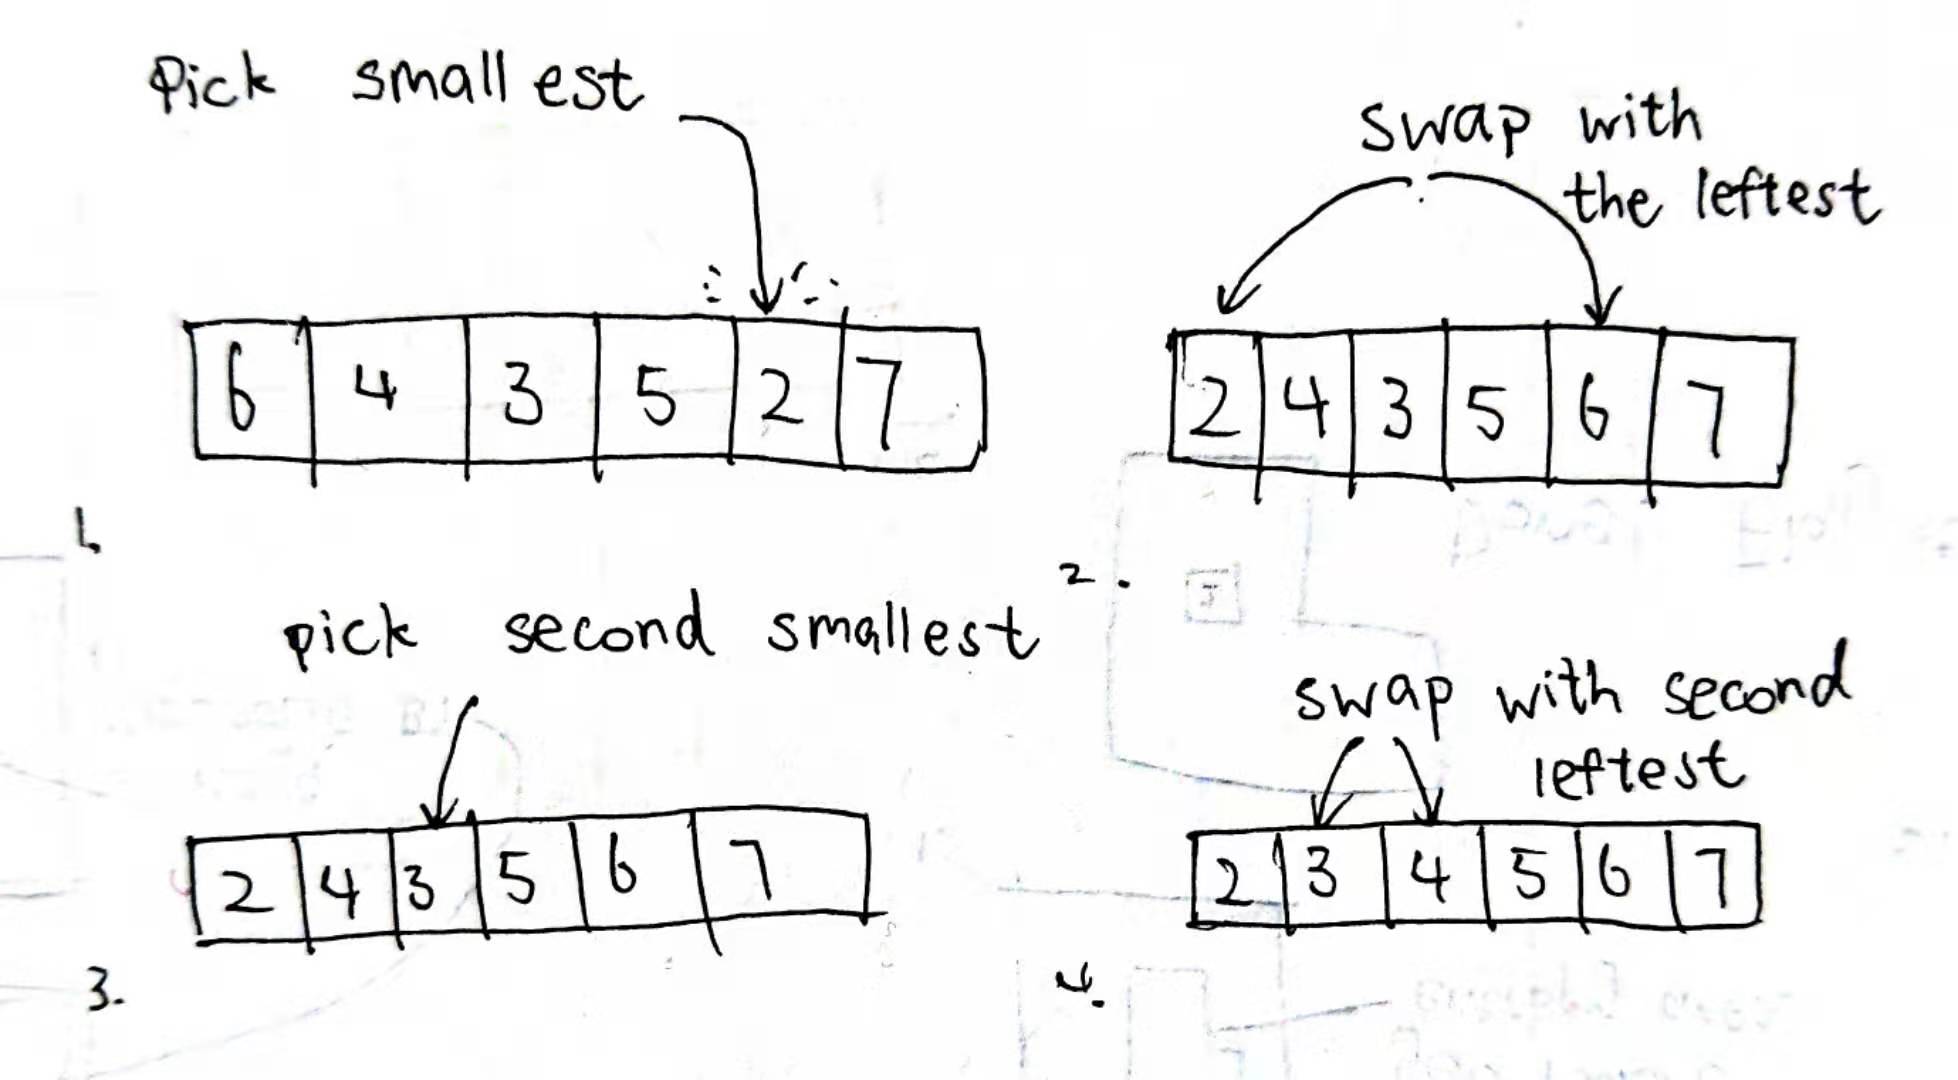 Pick smallest
6 4 3 5 2 7
1.
swap with
the leftest
2 4 3 5 6 7
2.
pick second smallest
2 4 3 5 6 7
3.
swap with second
leftest
2 3 4 5 6 7
4.